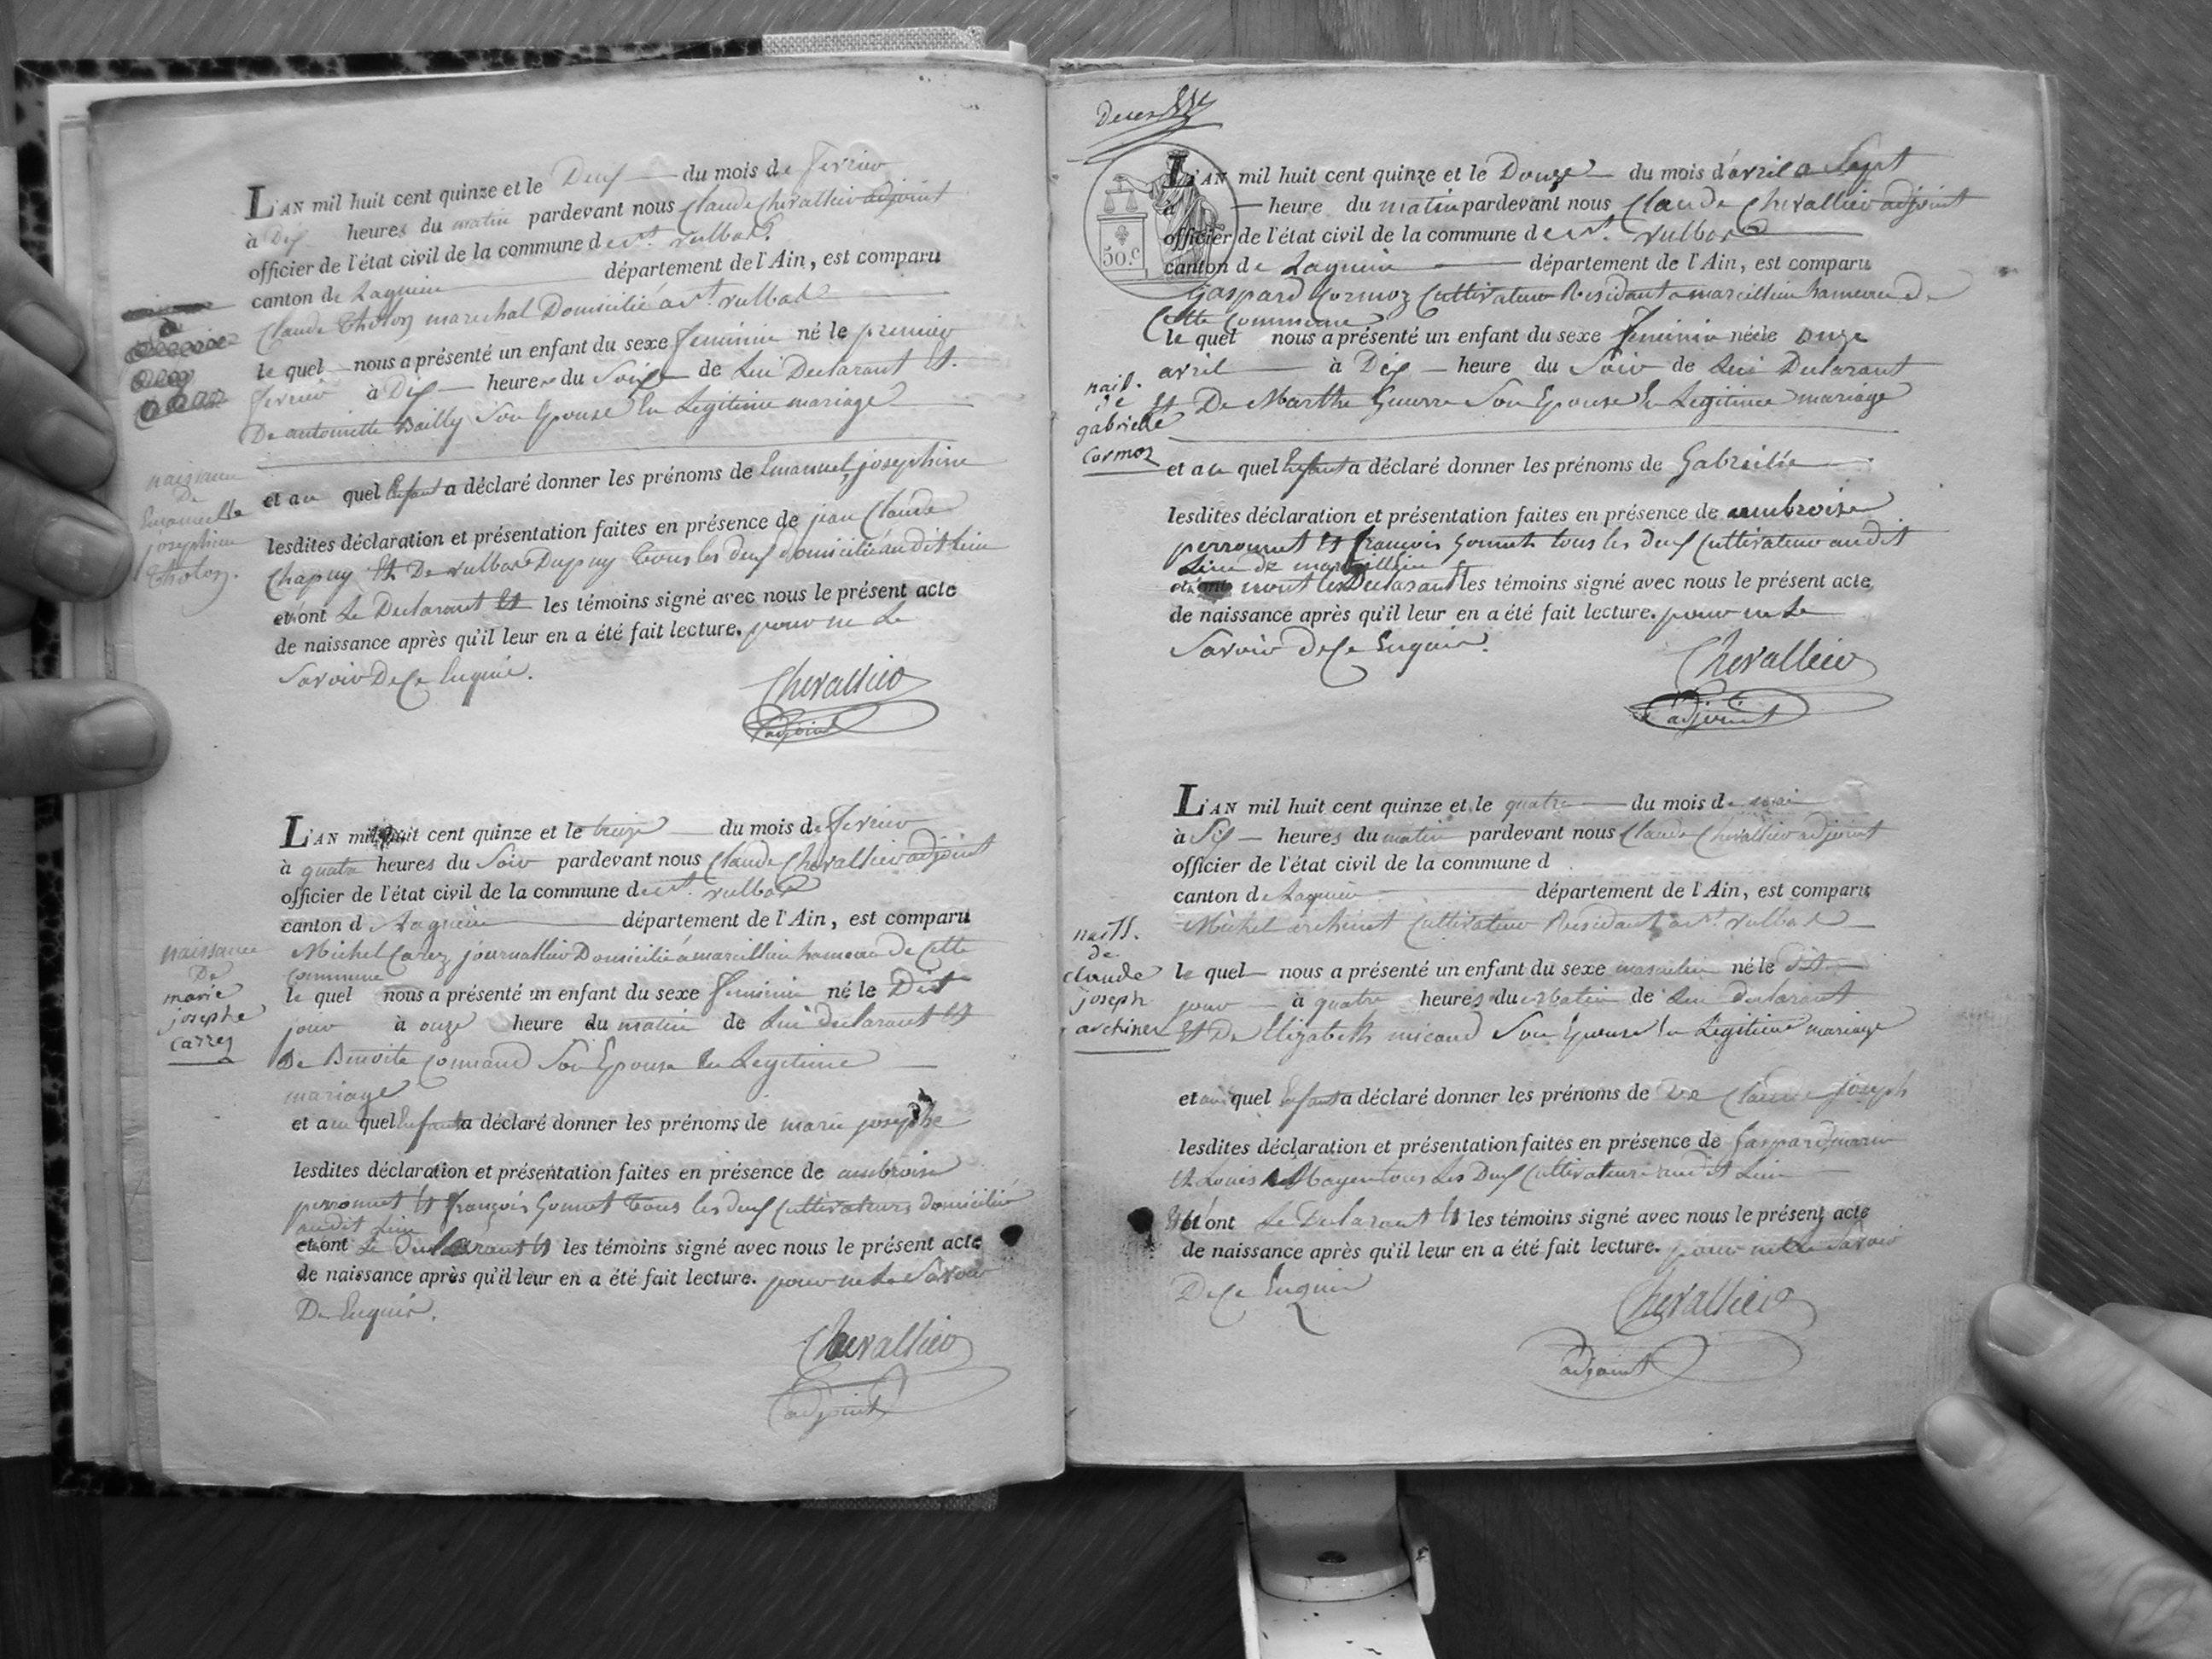 L'AN mil huit cent quinze et le Deux du mois de fevrier
à Dix heures du matin pardevant nous Claude Chevallier adjoint
officier de l'état civil de la commune de St. vulbas
canton de Lagnieu département de l'Ain, est comparu
Claude Tholoz marechal Domicilié a St. vulbas
le quel nous a présenté un enfant du sexe feminin né le premier
fevrier à Dix heures du Soir de Lui Declarant Et
De antoinette Bailly Son Epouse En Legitime mariage
naissance
De
Emanuelle
josephine
Tholoz.
et au quel Enfant a déclaré donner les prénoms de Emanuel, josephine
lesdites déclaration et présentation faites en présence de jean Claude
Chapuy Et De vulbas Dupuy tous les deux domicilié au dit lieu
et ont Le Declarant Et les témoins signé avec nous le présent acte
de naissance après qu'il leur en a été fait lecture. pour ne Le
Savoir De Ce Enquis.
Chevallier
adjoint
L'AN mil huit cent quinze et le treize du mois de fevrier
à quatre heures du Soir pardevant nous Claude Chevallier adjoint
officier de l'état civil de la commune de St. vulbas
canton d Lagnieu département de l'Ain, est comparu
Michel Carez journallier Domicilié a marcillieu hameau de Cette
Commune
le quel nous a présenté un enfant du sexe feminin né le Dit
jour à onze heure du matin de Lui declarant Et
De Benoite Son Epouse En Legitime
mariage
naissance
De
marie
josephe
Carrez
et au quel Enfant a déclaré donner les prénoms de marie josephe
lesdites déclaration et présentation faites en présence de ambroise
perronnet Et françois Gonnet tous les deux Cultivateurs domicilié
audit Lieu
et ont Le Declarant Et les témoins signé avec nous le présent acte
de naissance après qu'il leur en a été fait lecture. pour ne Le Savoir
De Enquis.
Chevallier
adjoint
50.c
L'AN mil huit cent quinze et le Douze du mois d'avril a Sept
à heure du matin pardevant nous Claude Chevallier adjoint
officier de l'état civil de la commune de St. vulbas
canton de Lagnieu département de l'Ain, est comparu
Gaspard Cormoz Cultivateur Residant a marcillieu hameau de
Cette Commune
le quel nous a présenté un enfant du sexe feminin née le onze
avril à Dix heure du Soir de Lui Declarant
Et De Marthe Guerre Son Epouse En Legitime mariage
nais.
de
gabrielle
Cormoz
et au quel Enfant a déclaré donner les prénoms de Gabrielle
lesdites déclaration et présentation faites en présence de ambroise
perronnet Et françois Gonnet tous les deux Cultivateur audit
Lieu de marcillieu
nont les Declarant Et les témoins signé avec nous le présent acte
de naissance après qu'il leur en a été fait lecture. pour ne Le
Savoir De Ce Enquis.
Chevallier
adjoint
L'AN mil huit cent quinze et le quatre du mois de mai
à Six heures du matin pardevant nous Claude Chevallier adjoint
officier de l'état civil de la commune d
canton de Lagnieu département de l'Ain, est comparu
Michel archinet Cultivateur Residant a St. vulbas
le quel nous a présenté un enfant du sexe masculin né le Dit
jour à quatre heures du matin de Lui declarant
Et De Elizabeth micoud Son Epouse En Legitime mariage
naiss.
de
Claude
joseph
archinet
et au quel Enfant a déclaré donner les prénoms de Claude joseph
lesdites déclaration et présentation faites en présence de Gaspard marin
Et Louis tous Les Deux Cultivateur audit Lieu
Et ont Le Declarant Et les témoins signé avec nous le présent acte
de naissance après qu'il leur en a été fait lecture. pour ne Le Savoir
De Ce Enquis
Chevallier
adjoint